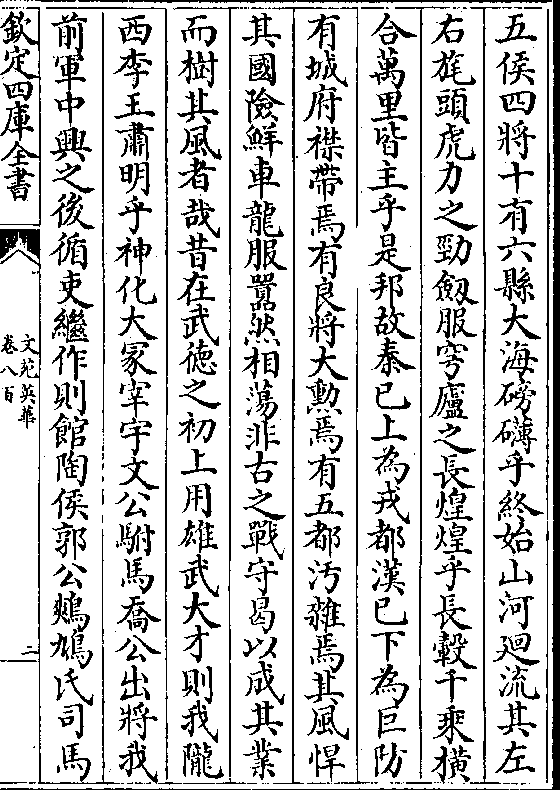 五侯四將十有六縣大海磅礴乎終始山河廻流其左
右旄頭虎力之勁劔服穹廬之長煌煌乎長轂千乘橫
合萬里皆主乎是邦故秦已上為戎都漢已下為巨防
有城府襟帶焉有良將大勲焉有五都汚雜焉其風悍
其國險鮮車龍服囂然相蕩非古之戰守曷以成其業
而樹其風者哉昔在武徳之初上用雄武大才則我隴
西李王肅明乎神化大冢宰宇文公駙馬喬公出將我
前軍中興之後循吏繼作則館陶侯郭公鷞鳩氏司馬
欽定四庫全書
文苑英華
卷八百
二